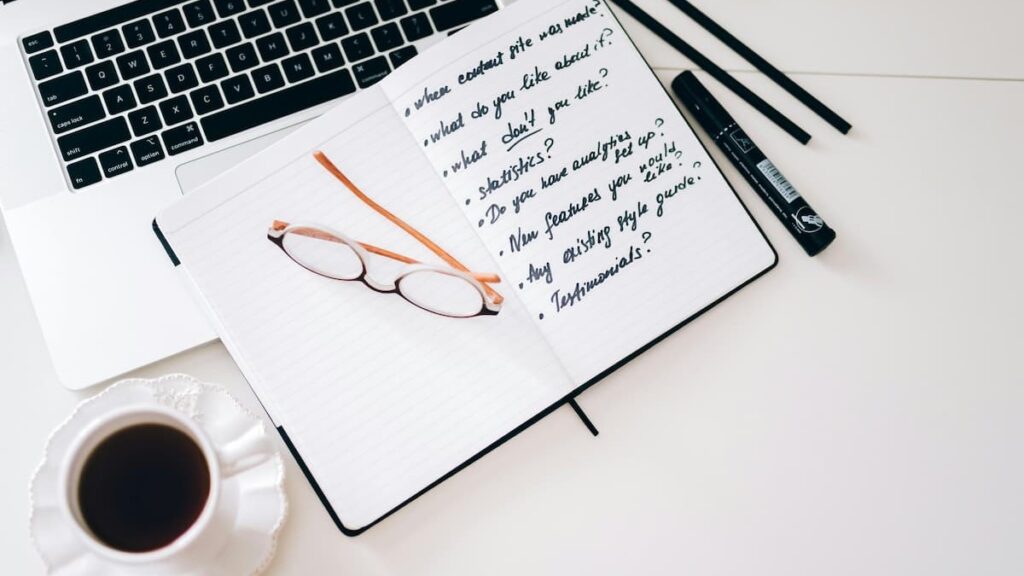 esc
1 2 3 4 5
Q W E R T Y U I
caps lock A S D F G H J K L
shift Z X C V B N M
control option command command
• when content site was made?
• what do you like about it?
• what don't you like?
• statistics?
• Do you have analytics
set up?
• New features you would
like?
• Any existing style guide?
• Testimonials?